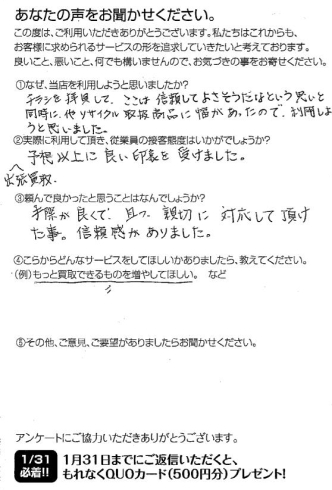 あなたの声をお聞かせください。
この度は、ご利用いただきありがとうございます。私たちはこれからも、
お客様に求められるサービスの形を追求していきたいと考えております。
良いこと、悪いこと、何でも構いませんので、お気づきの事をお寄せください。
①なぜ、当店を利用しようと思いましたか?
チラシを拝見して、ここは信頼してよさそうだなという思いと
同時に、他リサイクル取扱商品に幅があったので、利用しよ
うと思いました。
②実際に利用して頂き、従業員の接客態度はいかがでしょうか?
予想以上に良い印象を受けました。
出張買取.
③頼んで良かったと思うことはなんでしょうか?
手際が良くて、且つ、親切に対応して頂け
た事。信頼感がありました。
④こらからどんなサービスをしてほしいかありましたら、教えてください。
(例)もっと買取できるものを増やしてほしい。 など
〃
⑤その他、ご意見、ご要望がありましたらお聞かせください。
アンケートにご協力いただきありがとうございます。
1/31
必着!!
1月31日までにご返信いただくと、
もれなくQUOカード(500円分)プレゼント!